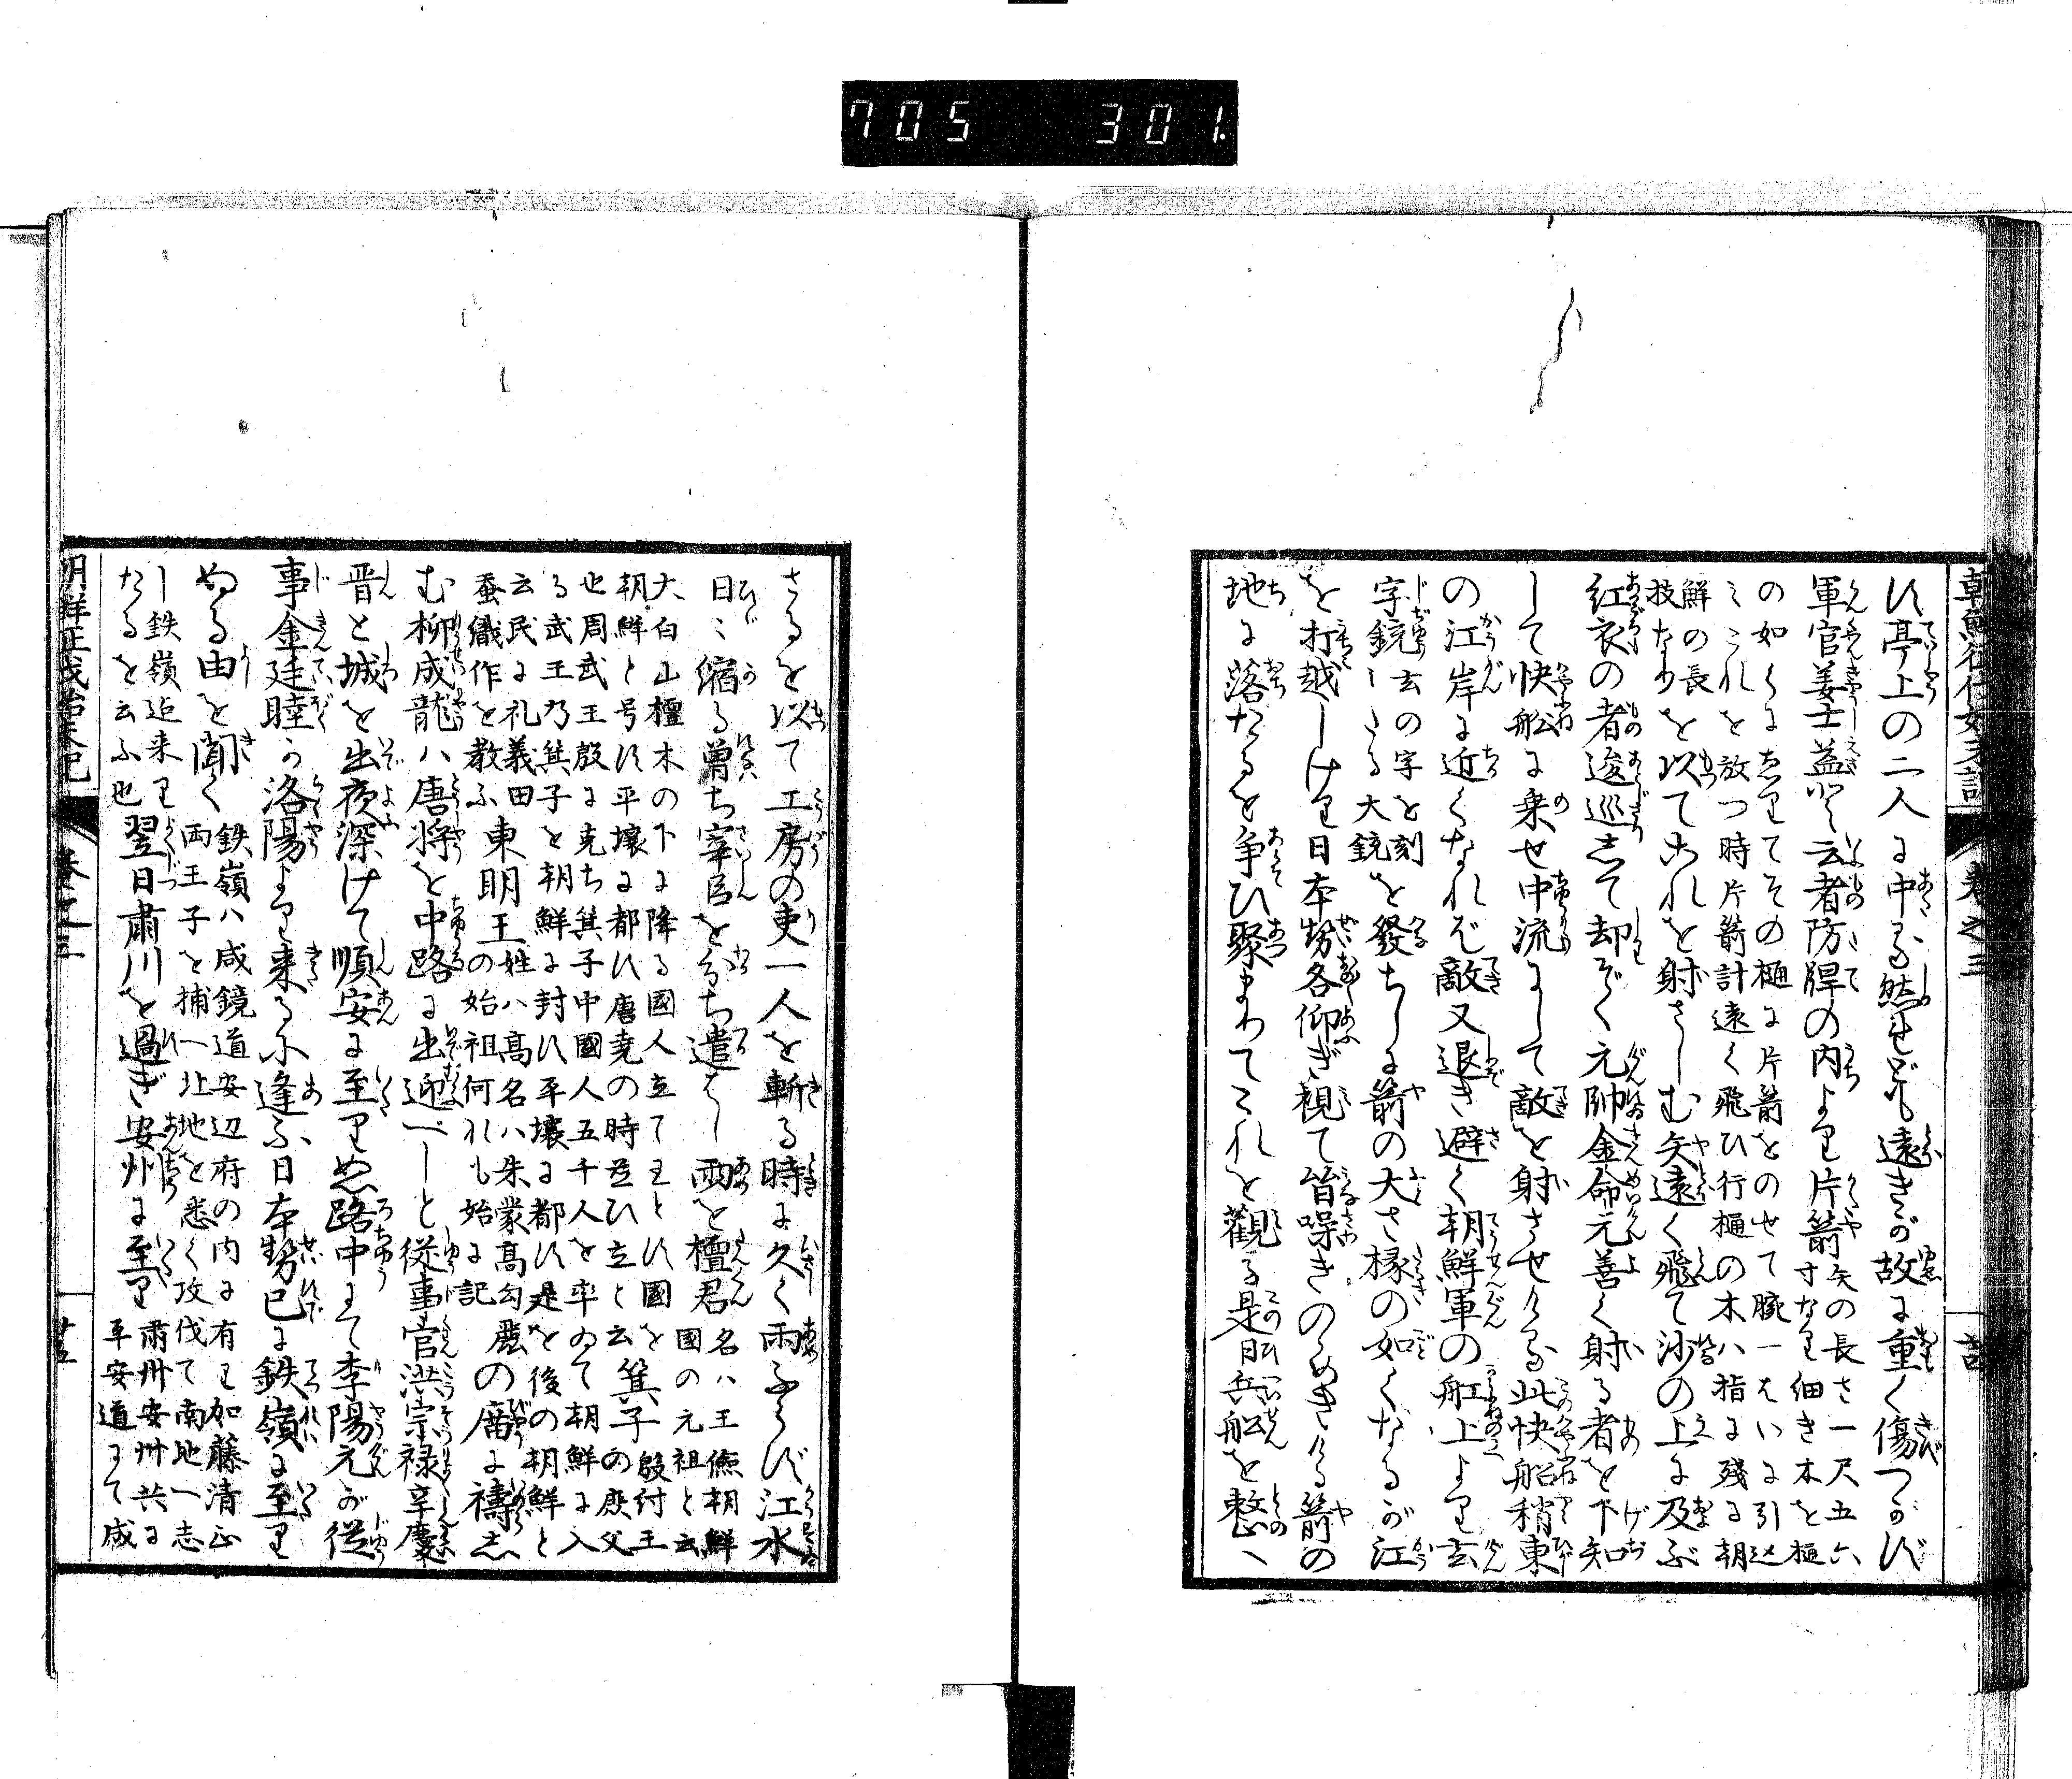 705 301.
朝鮮征伐始末記
巻之三
ひ亭上の二人に中る然れども遠きが故に重く傷つかず
軍官姜士益と云者防牌の内より片箭矢の長さ一尺五六
寸なり細き木を樋
の如くゑりてその樋に片箭をのせて腕一はいに引込
ミこれを放つ時片箭計遠く飛ひ行樋の木ハ指に残る朝
鮮の長
技なりを以てこれを射さしむ矢遠く飛て沙の上に及ぶ
紅衣の者逡巡して却ぞく元帥金命元善く射る者を下知
して快船に乗せ中流にして敵を射させける此快船稍東
の江岸に近くなれバ敵又退き避く朝鮮軍の舡上より玄
字銃玄の字を刻
ミたる大銃を發ちしに箭の大さ椽の如くなるが江
を打越しけり日本勢各仰ぎ視て皆噪きのめきける箭の
地に落たるを争ひ聚まりてこれを觀る是日兵船を整へ
さるを以て工房の吏一人を斬る時に久く雨ふらず江水
日ミ縮る曽ち宰臣を分ち遣ハし雨を檀君名ハ王儉朝鮮
國の元祖と云
大白山檀木の下に降る國人立て王とす國を
朝鮮と号す平壌に都す唐堯の時並ひ立と云箕子殷紂王
の庶父
也周武王殷に克ち箕子中國人五千人を率ゐて朝鮮に入
る武王乃箕子を朝鮮に封す平壌に都す是を後の朝鮮と
云民に礼義田
蚕織作を教ふ東明王姓ハ高名ハ朱蒙高勾麗
の始祖何れも始に記の廟に禱志
む柳成龍ハ唐将を中路に出迎べしと従事官洪宗禄辛慶
晋と城を出夜深けて順安に至りぬ路中にて李陽元が従
事金廷睦が洛陽より来るに逢ふ日本勢已に鉄嶺に至り
ぬる由を聞く鉄嶺ハ咸鏡道安辺府の内に有り加藤清正
両王子を捕へ北地を悉く攻伐て南地へ志
し鉄嶺迄来り
たるを云ふ也翌日肅川を過ぎ安州に至り肅州安州共に
平安道にて咸
巻之三